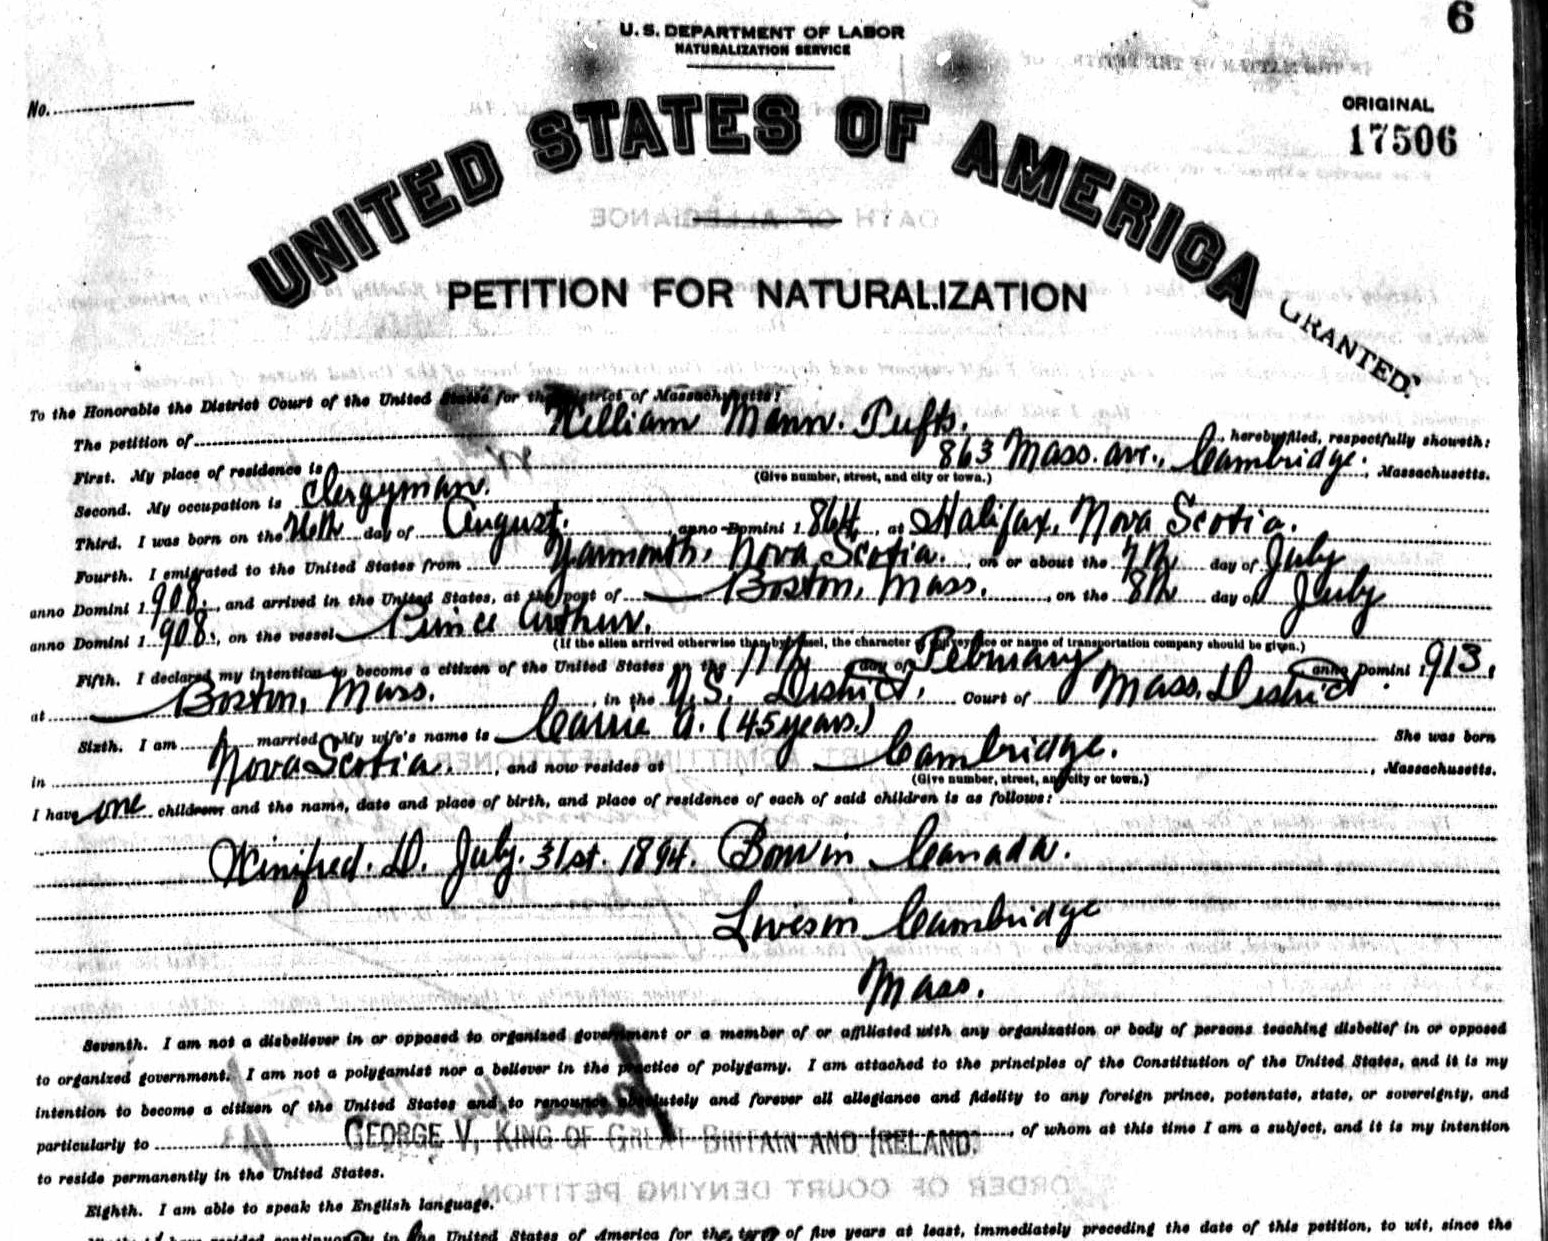 6
U. S. DEPARTMENT OF LABOR
NATURALIZATION SERVICE
No.
ORIGINAL
17506
UNITED STATES OF AMERICA
PETITION FOR NATURALIZATION
GRANTED.
To the Honorable the District Court of the United States for the District of Massachusetts:
The petition of William Mann. Tufts., hereby filed, respectfully showeth:
First. My place of residence is 863 Mass. ave., Cambridge., Massachusetts.
(Give number, street, and city or town.)
Second. My occupation is Clergyman.
Third. I was born on the day of August., anno Domini 1.864, at Halifax, Nova Scotia.
Fourth. I emigrated to the United States from Yarmouth, Nova Scotia., on or about the 7th day of July
anno Domini 1.908., and arrived in the United States, at the port of Boston, Mass., on the 8th day of July
anno Domini 1.908., on the vessel Prince Arthur.
(If the alien arrived otherwise than by vessel, the character of conveyance or name of transportation company should be given.)
Fifth. I declared my intention to become a citizen of the United States on the 11th day of February, anno Domini 1.913,
at Boston, Mass., in the U.S. District, Court of Mass. District.
Sixth. I am married. My wife's name is Carrie A. (45 years.) She was born
in Nova Scotia., and now resides at Cambridge., Massachusetts.
(Give number, street, and city or town.)
I have one children and the name, date and place of birth, and place of residence of each of said children is as follows:
Winifred. D. July. 31st. 1894. Born in Canada.
Lives in Cambridge
Mass.
Seventh. I am not a disbeliever in or opposed to organized government or a member of or affiliated with any organization or body of persons teaching disbelief in or opposed
to organized government. I am not a polygamist nor a believer in the practice of polygamy. I am attached to the principles of the Constitution of the United States, and it is my
intention to become a citizen of the United States and to renounce absolutely and forever all allegiance and fidelity to any foreign prince, potentate, state, or sovereignty, and
particularly to GEORGE V, KING OF GREAT BRITAIN AND IRELAND., of whom at this time I am a subject, and it is my intention
to reside permanently in the United States.
Eighth. I am able to speak the English language.
have resided continuously in the United States of America for the term of five years at least, immediately preceding the date of this petition, to wit, since the